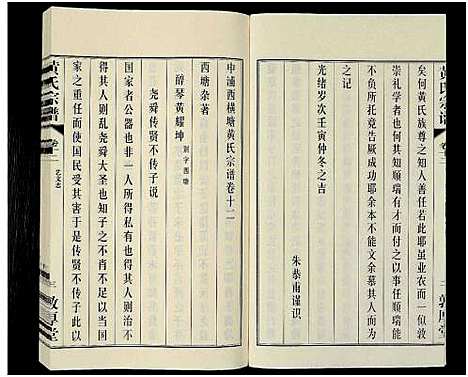 矣何黄氏族尊之知人善任若此耶虽业农而一似敦
崇礼学者也其知顺瑞有才而付之以事任顺瑞能
不负所托竟告厥成功耶余本不能文余慕其人而为
之记
光绪岁次壬寅仲冬之吉
朱恭甫谨识
黄氏宗谱
卷
敦厚堂
申浦西横塘黄氏宗谱卷十二
西塘杂著
醇琴黄耀坤
别字西塘
尧舜传贤不传子说
国家者公器也非一人所得私有也得其人则治不
得其人则乱尧舜大圣也知子之不肖不足以当国
家之重任而使国民受其害于是传贤不传子此以
黄氏宗谱
卷
艺文志
敦厚堂